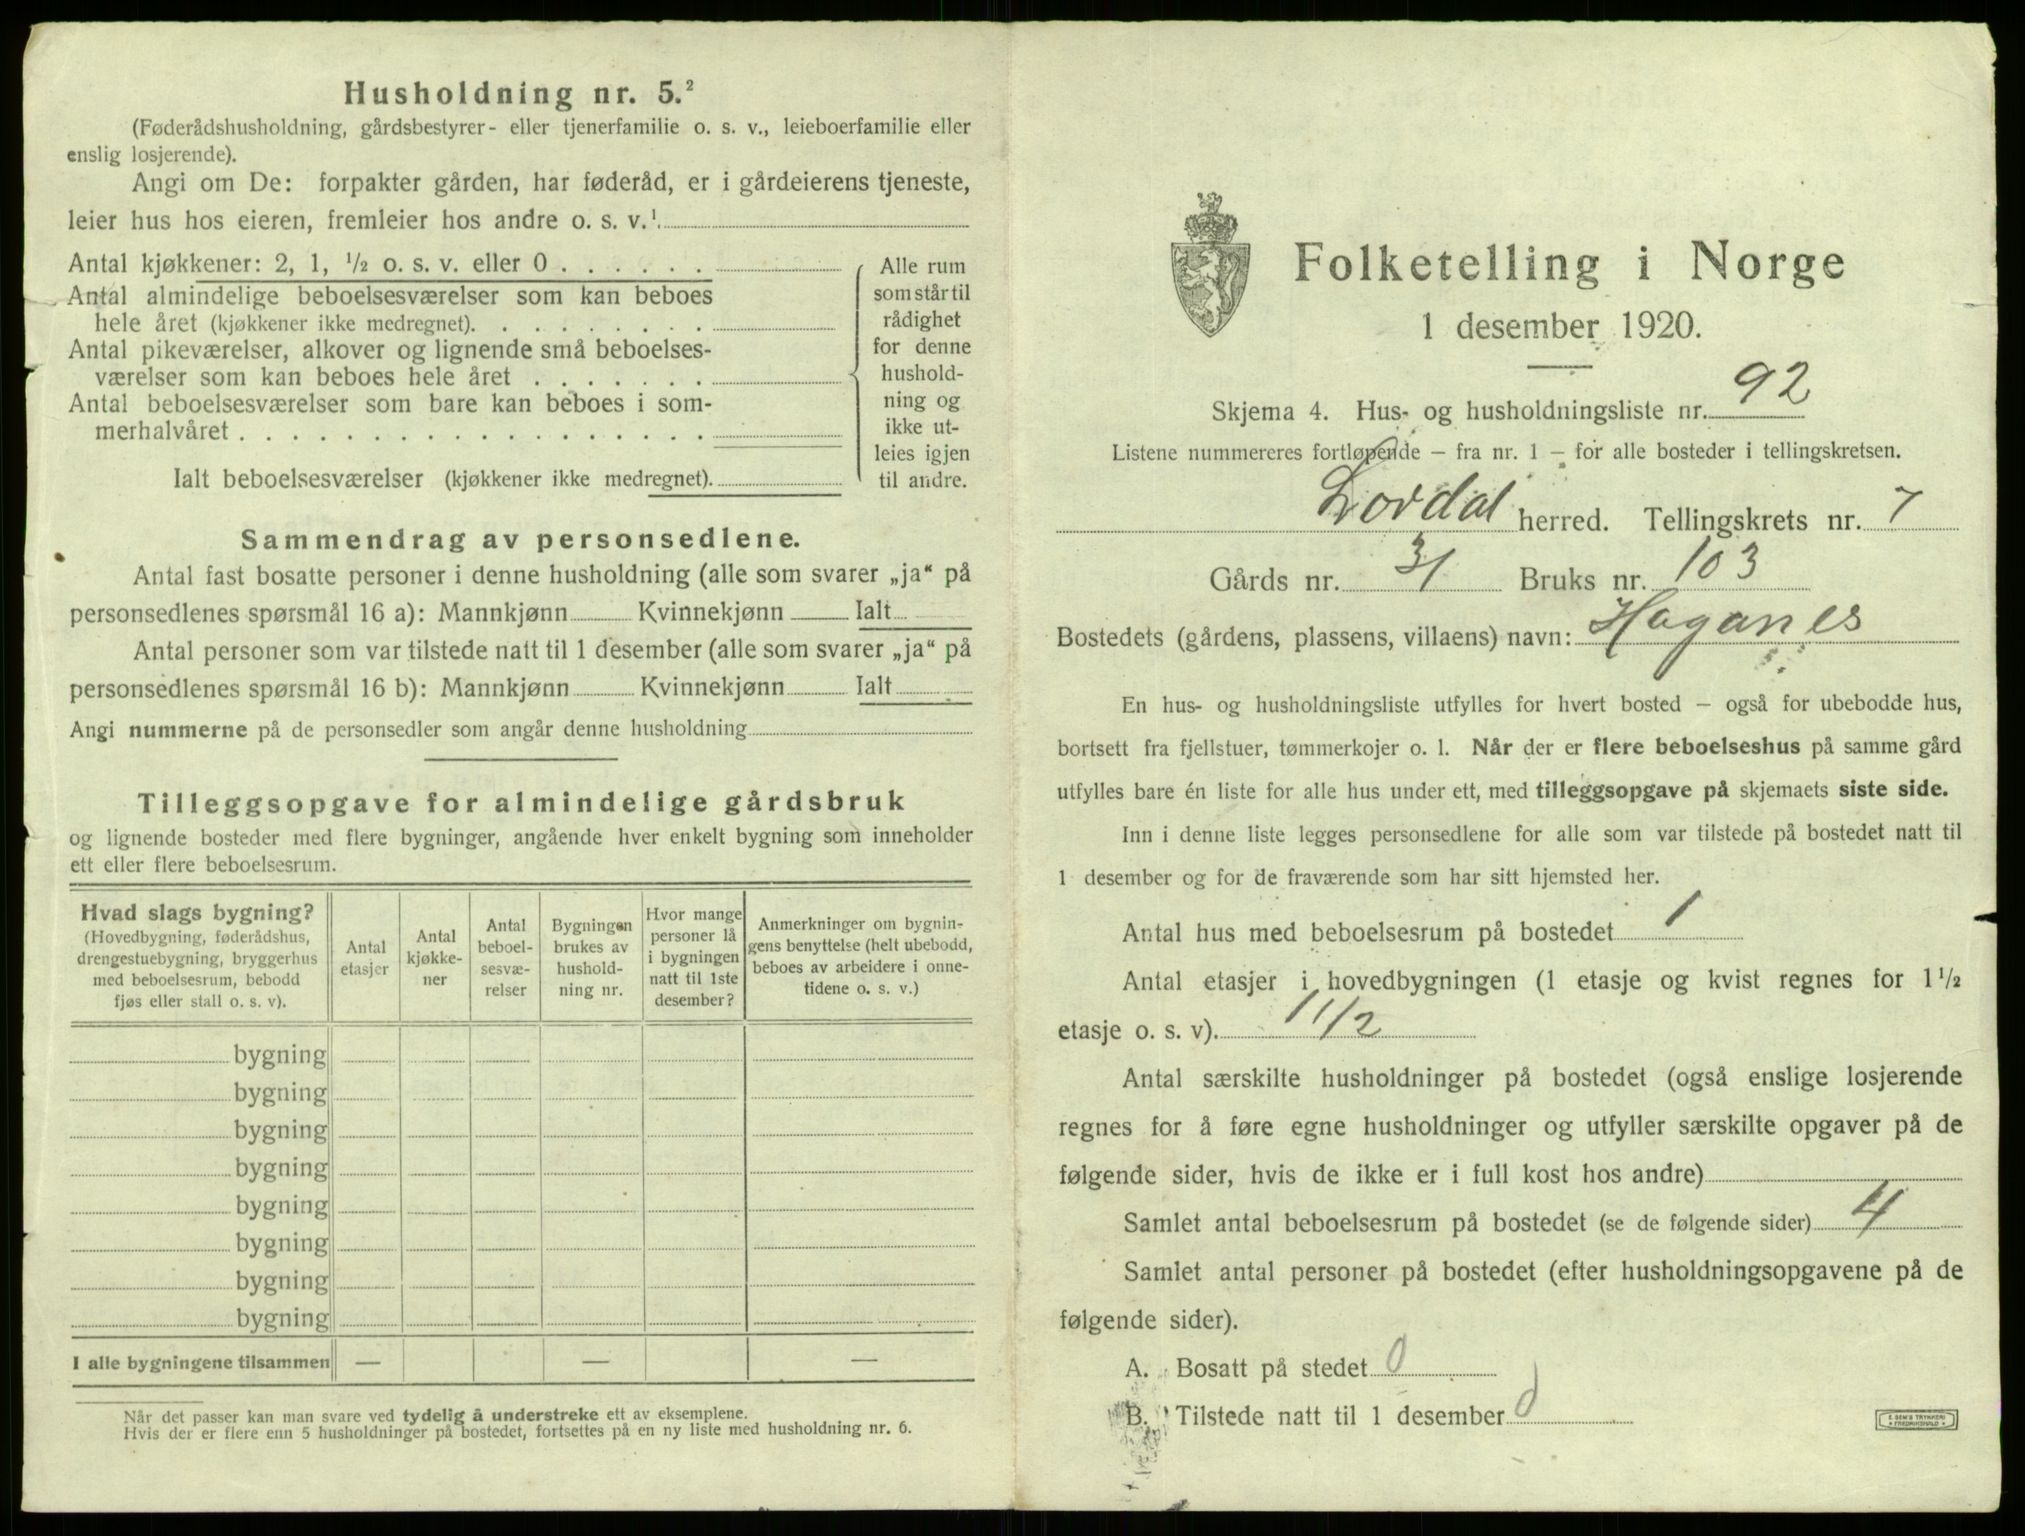 Husholdning nr. 5.²
(Føderådshusholdning, gårdsbestyrer- eller tjenerfamilie o. s. v., leieboerfamilie eller
enslig losjerende).
Angi om De: forpakter gården, har føderåd, er i gårdeierens tjeneste,
leier hus hos eieren, fremleier hos andre o. s. v.¹
Antal kjøkkener: 2, 1, ½ o. s. v. eller 0 . . . . . .
Antal almindelige beboelsesværelser som kan beboes
hele året (kjøkkener ikke medregnet). . . . . . . . .
Antal pikeværelser, alkover og lignende små beboelses-
værelser som kan beboes hele året . . . . . . .
Antal beboelsesværelser som bare kan beboes i som-
merhalvåret . . . . . . . . . . . . . . . . . .
Ialt beboelsesværelser (kjøkkener ikke medregnet).
Alle rum
som står til
rådighet
for denne
hushold-
ning og
ikke ut-
leies igjen
til andre.
Sammendrag av personsedlene.
Antal fast bosatte personer i denne husholdning (alle som svarer „ja" på
personsedlenes spørsmål 16 a): Mannkjønn Kvinnekjønn Ialt
Antal personer som var tilstede natt til 1 desember (alle som svarer „ja" på
personsedlenes spørsmål 16 b): Mannkjønn Kvinnekjønn Ialt
Angi nummerne på de personsedler som angår denne husholdning
Tilleggsopgave for almindelige gårdsbruk
og lignende bosteder med flere bygninger, angående hver enkelt bygning som inneholder
ett eller flere beboelsesrum.
Hvad slags bygning?
(Hovedbygning, føderådshus,
drengestuebygning, bryggerhus
med beboelsesrum, bebodd
fjøs eller stall o. s. v).
Antal
etasjer
Antal
kjøkke-
ner
Antal
beboel-
sesvæ-
relser
Bygningen
brukes av
hushold-
ning nr.
Hvor mange
personer lå
i bygningen
natt til 1ste
desember?
Anmerkninger om bygnin-
gens benyttelse (helt ubebodd,
beboes av arbeidere i onne-
tidene o. s. v.)
bygning
bygning
bygning
bygning
bygning
bygning
bygning
bygning
I alle bygningene tilsammen — — —
Når det passer kan man svare ved tydelig å understreke ett av eksemplene.
Hvis der er flere enn 5 husholdninger på bostedet, fortsettes på en ny liste med husholdning nr. 6.
Folketelling i Norge
1 desember 1920.
Skjema 4. Hus- og husholdningsliste nr. 92
Listene nummereres fortløpende — fra nr. 1 — for alle bosteder i tellingskretsen.
herred. Tellingskrets nr. 7
Gårds nr. 31 Bruks nr. 103
Bostedets (gårdens, plassens, villaens) navn: Haganes
En hus- og husholdningsliste utfylles for hvert bosted — også for ubebodde hus,
bortsett fra fjellstuer, tømmerkojer o. l. Når der er flere beboelseshus på samme gård
utfylles bare én liste for alle hus under ett, med tilleggsopgave på skjemaets siste side.
Inn i denne liste legges personsedlene for alle som var tilstede på bostedet natt til
1 desember og for de fraværende som har sitt hjemsted her.
Antal hus med beboelsesrum på bostedet 1
Antal etasjer i hovedbygningen (1 etasje og kvist regnes for 1½
etasje o. s. v). 1 1/2
Antal særskilte husholdninger på bostedet (også enslige losjerende
regnes for å føre egne husholdninger og utfyller særskilte opgaver på de
følgende sider, hvis de ikke er i full kost hos andre)
Samlet antal beboelsesrum på bostedet (se de følgende sider) 4
Samlet antal personer på bostedet (efter husholdningsopgavene på de
følgende sider).
A. Bosatt på stedet 0
B. Tilstede natt til 1 desember 0
E. SEM'S TRYKKERI
FREDRIKSHALD